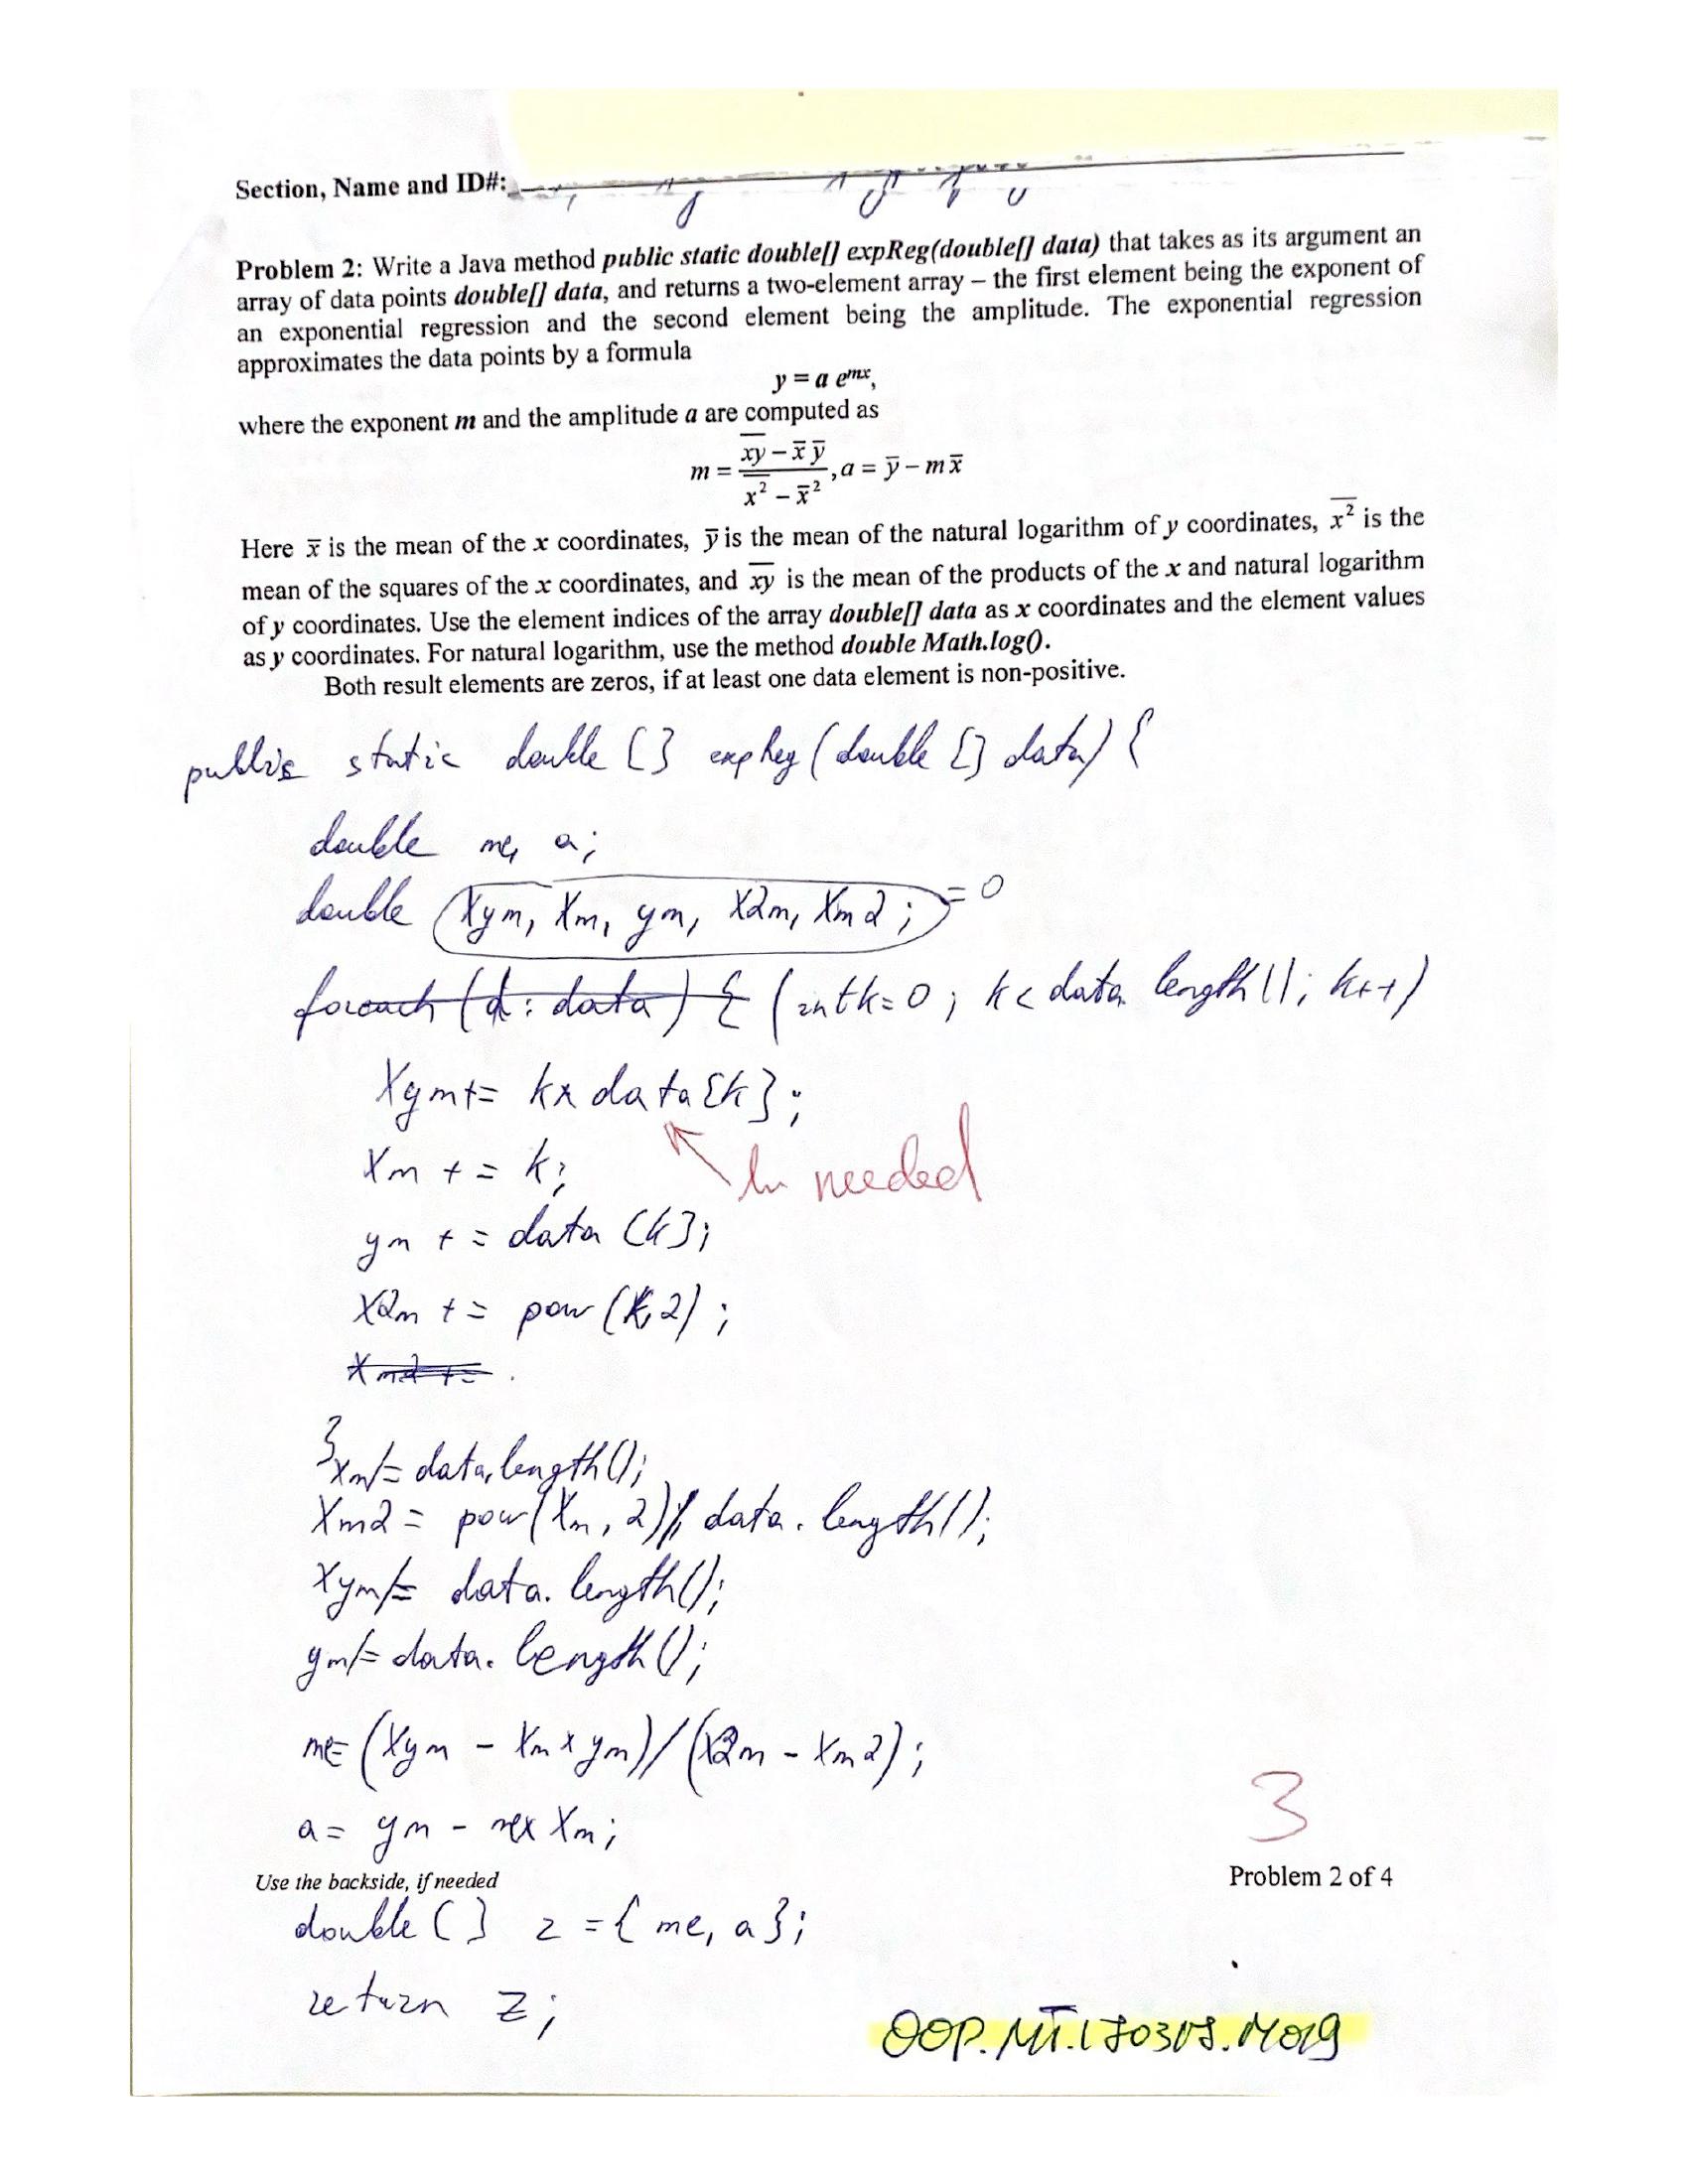 Section, Name and ID#:
Problem 2: Write a Java method public static double[] expReg(double[] data) that takes as its argument an
array of data points double[] data, and returns a two-element array – the first element being the exponent of
an exponential regression and the second element being the amplitude. The exponential regression
approximates the data points by a formula
y = a e^{mx},
where the exponent m and the amplitude a are computed as
m = \frac{\overline{xy} - \bar{x}\bar{y}}{\overline{x^2} - \bar{x}^2}, a = \bar{y} - m\bar{x}
Here x̄ is the mean of the x coordinates, ȳ is the mean of the natural logarithm of y coordinates, \overline{x^2} is the
mean of the squares of the x coordinates, and \overline{xy} is the mean of the products of the x and natural logarithm
of y coordinates. Use the element indices of the array double[] data as x coordinates and the element values
as y coordinates. For natural logarithm, use the method double Math.log().
Both result elements are zeros, if at least one data element is non-positive.
public static double [] expReg (double [] data) {
double me, a;
double xym, xm, ym, x2m, xm2; = 0
foreach (d : data) { (int k=0; k < data.length(); k++)
xym += k * data[k];
ln needed
xm += k;
ym += data [k];
x2m += pow (k, 2);
xm2 +=
}
xm /= data.length();
xm2 = pow(xm, 2) / data.length();
xym /= data.length();
ym /= data.length();
me = (xym - xm * ym) / (x2m - xm2);
a = ym - me * xm;
3
Use the backside, if needed
Problem 2 of 4
double [] z = { me, a };
return z;
OOP.MT.170308.M019